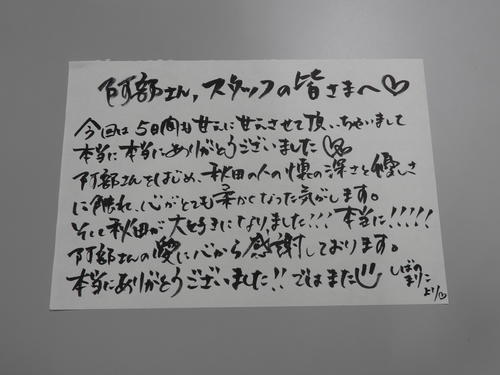 阿部さん,スタッフの皆さまへ♡
今回は5日間も甘えに甘えさせて頂いちゃいまして
本当に本当にありがとうございました♡
阿部さんをはじめ、秋田の人の懐の深さと優しさ
に触れ、心がとても柔かくなった気がします。
そして秋田が大好きになりました!!!本当に!!!!!
阿部さんの愛に心から感謝しております。
本当にありがとうございました!!ではまた
しばの
まりこ
より♡